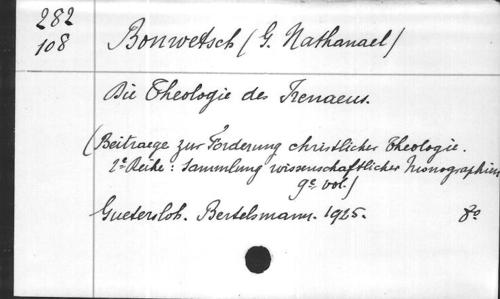 282
108
Bonwetsch (G. Nathanael)
Die Theologie des Irenaeus.
(Beitraege zur Förderung christlicher Theologie.
2e Reihe : Sammlung wissenschaftlicher Monographien
9e vol.)
Guetersloh. Bertelsmann. 1925. 8o